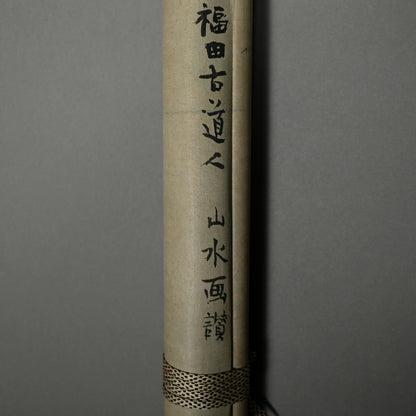 福田古道人 山水画讃